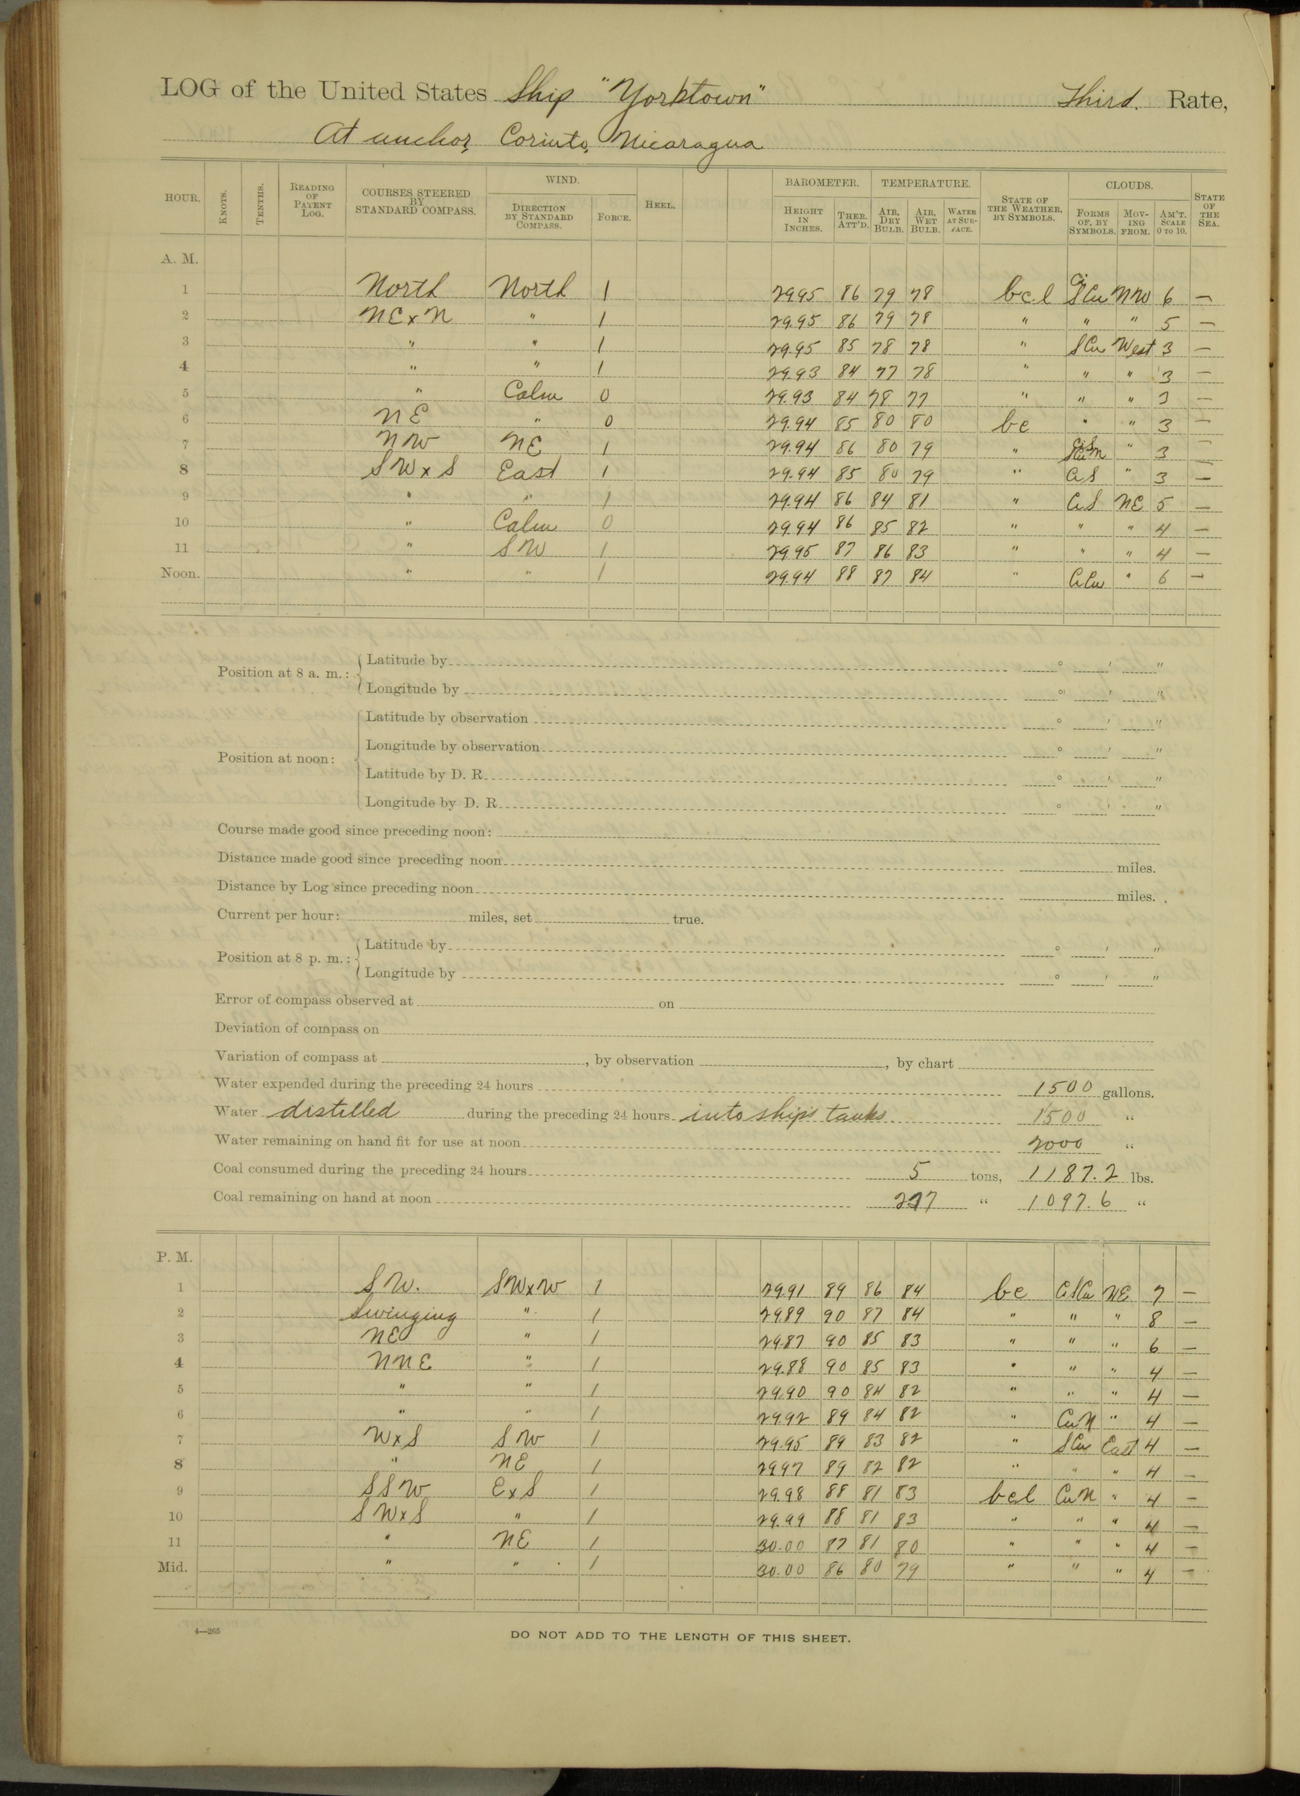 LOG of the United States Ship "Yorktown" Third Rate,
At anchor, Corinto, Nicaragua
HOUR. KNOTS. TENTHS. READING OF PATENT LOG. COURSES STEERED BY STANDARD COMPASS. WIND. DIRECTION BY STANDARD COMPASS. FORCE. HEEL. BAROMETER. HEIGHT IN INCHES. THER. ATT'D. TEMPERATURE. AIR, DRY BULB. AIR, WET BULB. WATER AT SURFACE. STATE OF THE WEATHER, BY SYMBOLS. CLOUDS. FORMS OF, BY SYMBOLS. MOVING FROM. AM'T. SCALE 0 TO 10. STATE OF THE SEA.
A. M.
1 North North 1 29.95 86 79 78 bcl Ci SCu NW 6 —
2 NExN " 1 29.95 86 79 78 " " " 5 —
3 " " 1 29.95 85 78 78 " SCu West 3 —
4 " " 1 29.93 84 77 78 " " " 3 —
5 " Calm 0 29.93 84 78 77 " " " 3 —
6 NE " 0 29.94 85 80 80 bc " " 3 —
7 NW NE 1 29.94 86 80 79 " " 3 —
8 SWxS East 1 29.94 85 80 79 " CiS " 3 —
9 " " 1 29.94 86 84 81 " CiS NE 5 —
10 " Calm 0 29.94 86 85 82 " " " 4 —
11 " SW 1 29.95 87 86 83 " " " 4 —
Noon. " " 1 29.94 88 87 84 " CiCu " 6 —
Position at 8 a. m.: Latitude by ° ' "
Longitude by ° ' "
Position at noon: Latitude by observation ° ' "
Longitude by observation ° ' "
Latitude by D. R. ° ' "
Longitude by D. R. ° ' "
Course made good since preceding noon:
Distance made good since preceding noon miles.
Distance by Log since preceding noon miles.
Current per hour: miles, set true.
Position at 8 p. m.: Latitude by ° ' "
Longitude by ° ' "
Error of compass observed at on
Deviation of compass on
Variation of compass at , by observation , by chart
Water expended during the preceding 24 hours 1500 gallons.
Water distilled during the preceding 24 hours into ship's tanks 1500 "
Water remaining on hand fit for use at noon 2000 "
Coal consumed during the preceding 24 hours 5 tons, 1187.2 lbs.
Coal remaining on hand at noon " 1097.6 "
P. M.
1 SW. SWxW 1 29.91 89 86 84 bc CiSCu NE 7 —
2 Swinging " 1 29.89 90 87 84 " " " 8 —
3 NE " 1 29.87 90 85 83 " " " 6 —
4 NNE " 1 29.88 90 85 83 " " " 4 —
5 " " 1 29.90 90 84 82 " " " 4 —
6 " " 1 29.92 89 84 82 " CuN " 4 —
7 WxS SW 1 29.95 89 83 82 " SCu East 4 —
8 " NE 1 29.97 89 82 82 " " " 4 —
9 SSW ExS 1 29.98 88 81 83 bcl CuN " 4 —
10 SWxS " 1 29.99 88 81 83 " " " 4 —
11 " NE 1 30.00 87 81 80 " " " 4 —
Mid. " " 1 30.00 86 80 79 " " " 4 —
4—265
DO NOT ADD TO THE LENGTH OF THIS SHEET.